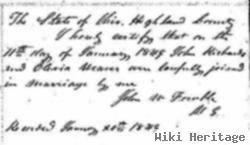 The State of Ohio, Highland County
I hereby certify that on the
10th day of January, 1849 John Richards
and Elvira Weaver were lawfully joined
in marriage by me
John W
Recorded January 20th 1849
Wiki Heritage